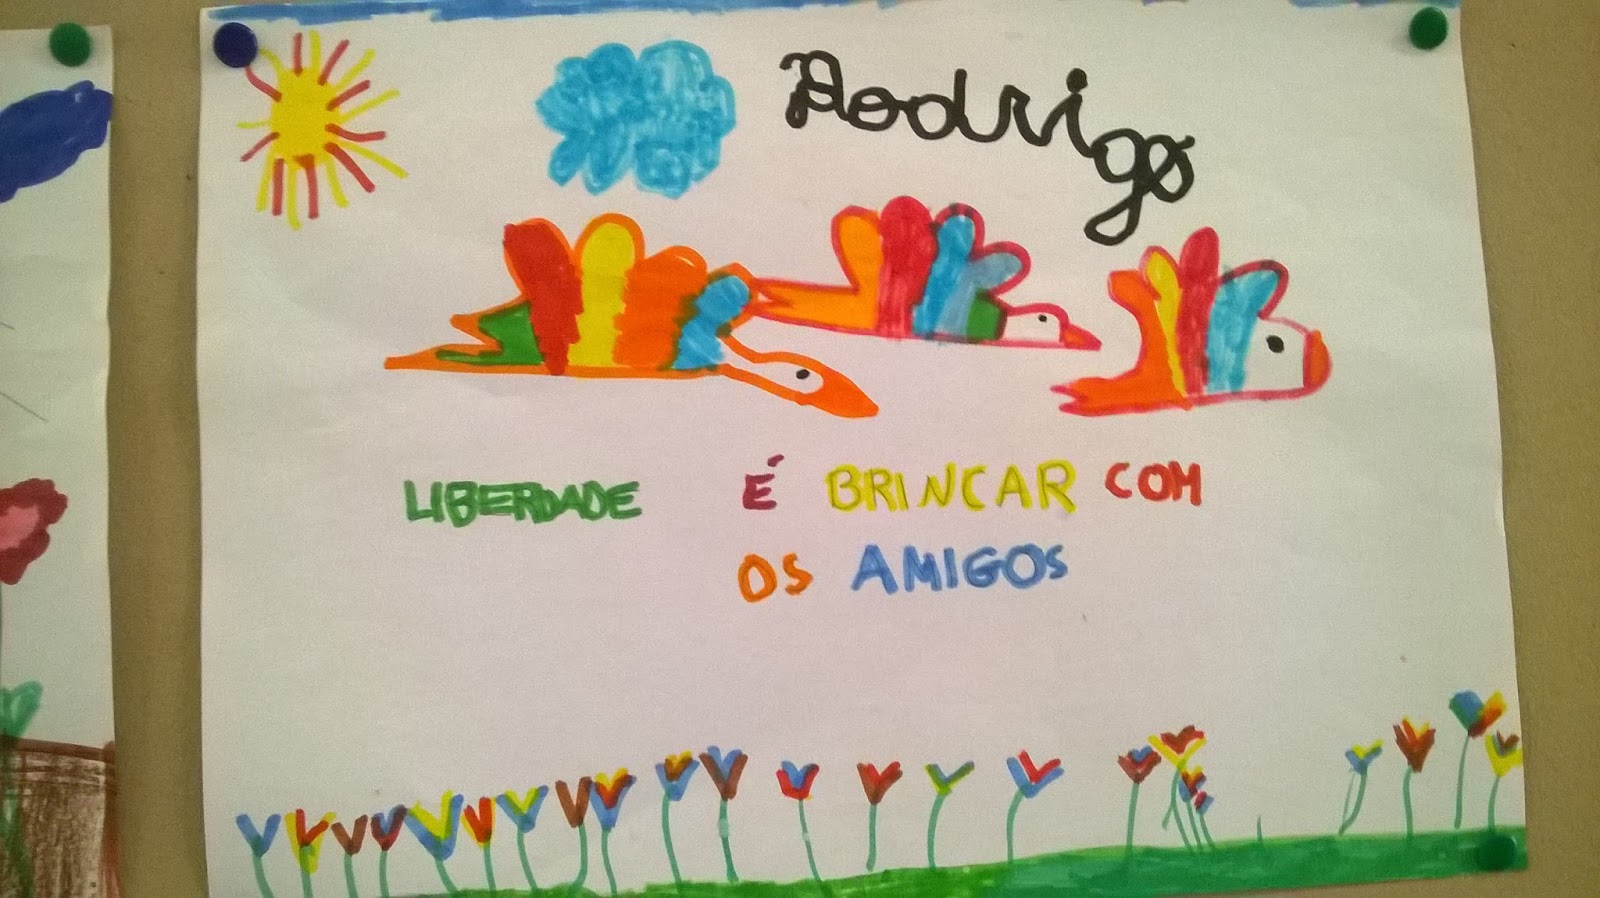 Rodrigo
LIBERDADE É BRINCAR COM
OS AMIGOS